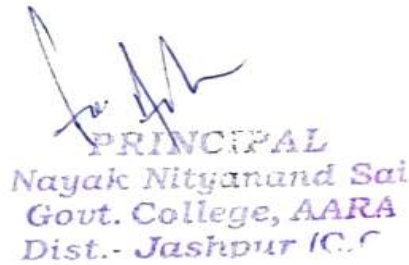 PRINCIPAL
Nayak Nityanund Sai
Govt. College, AARA
Dist.- Jashpur (C.G